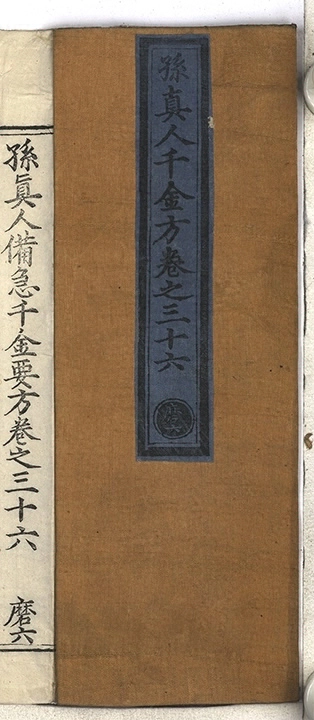 孫真人千金方卷之三十六
磨六
孫真人備急千金要方卷之三十六
磨六